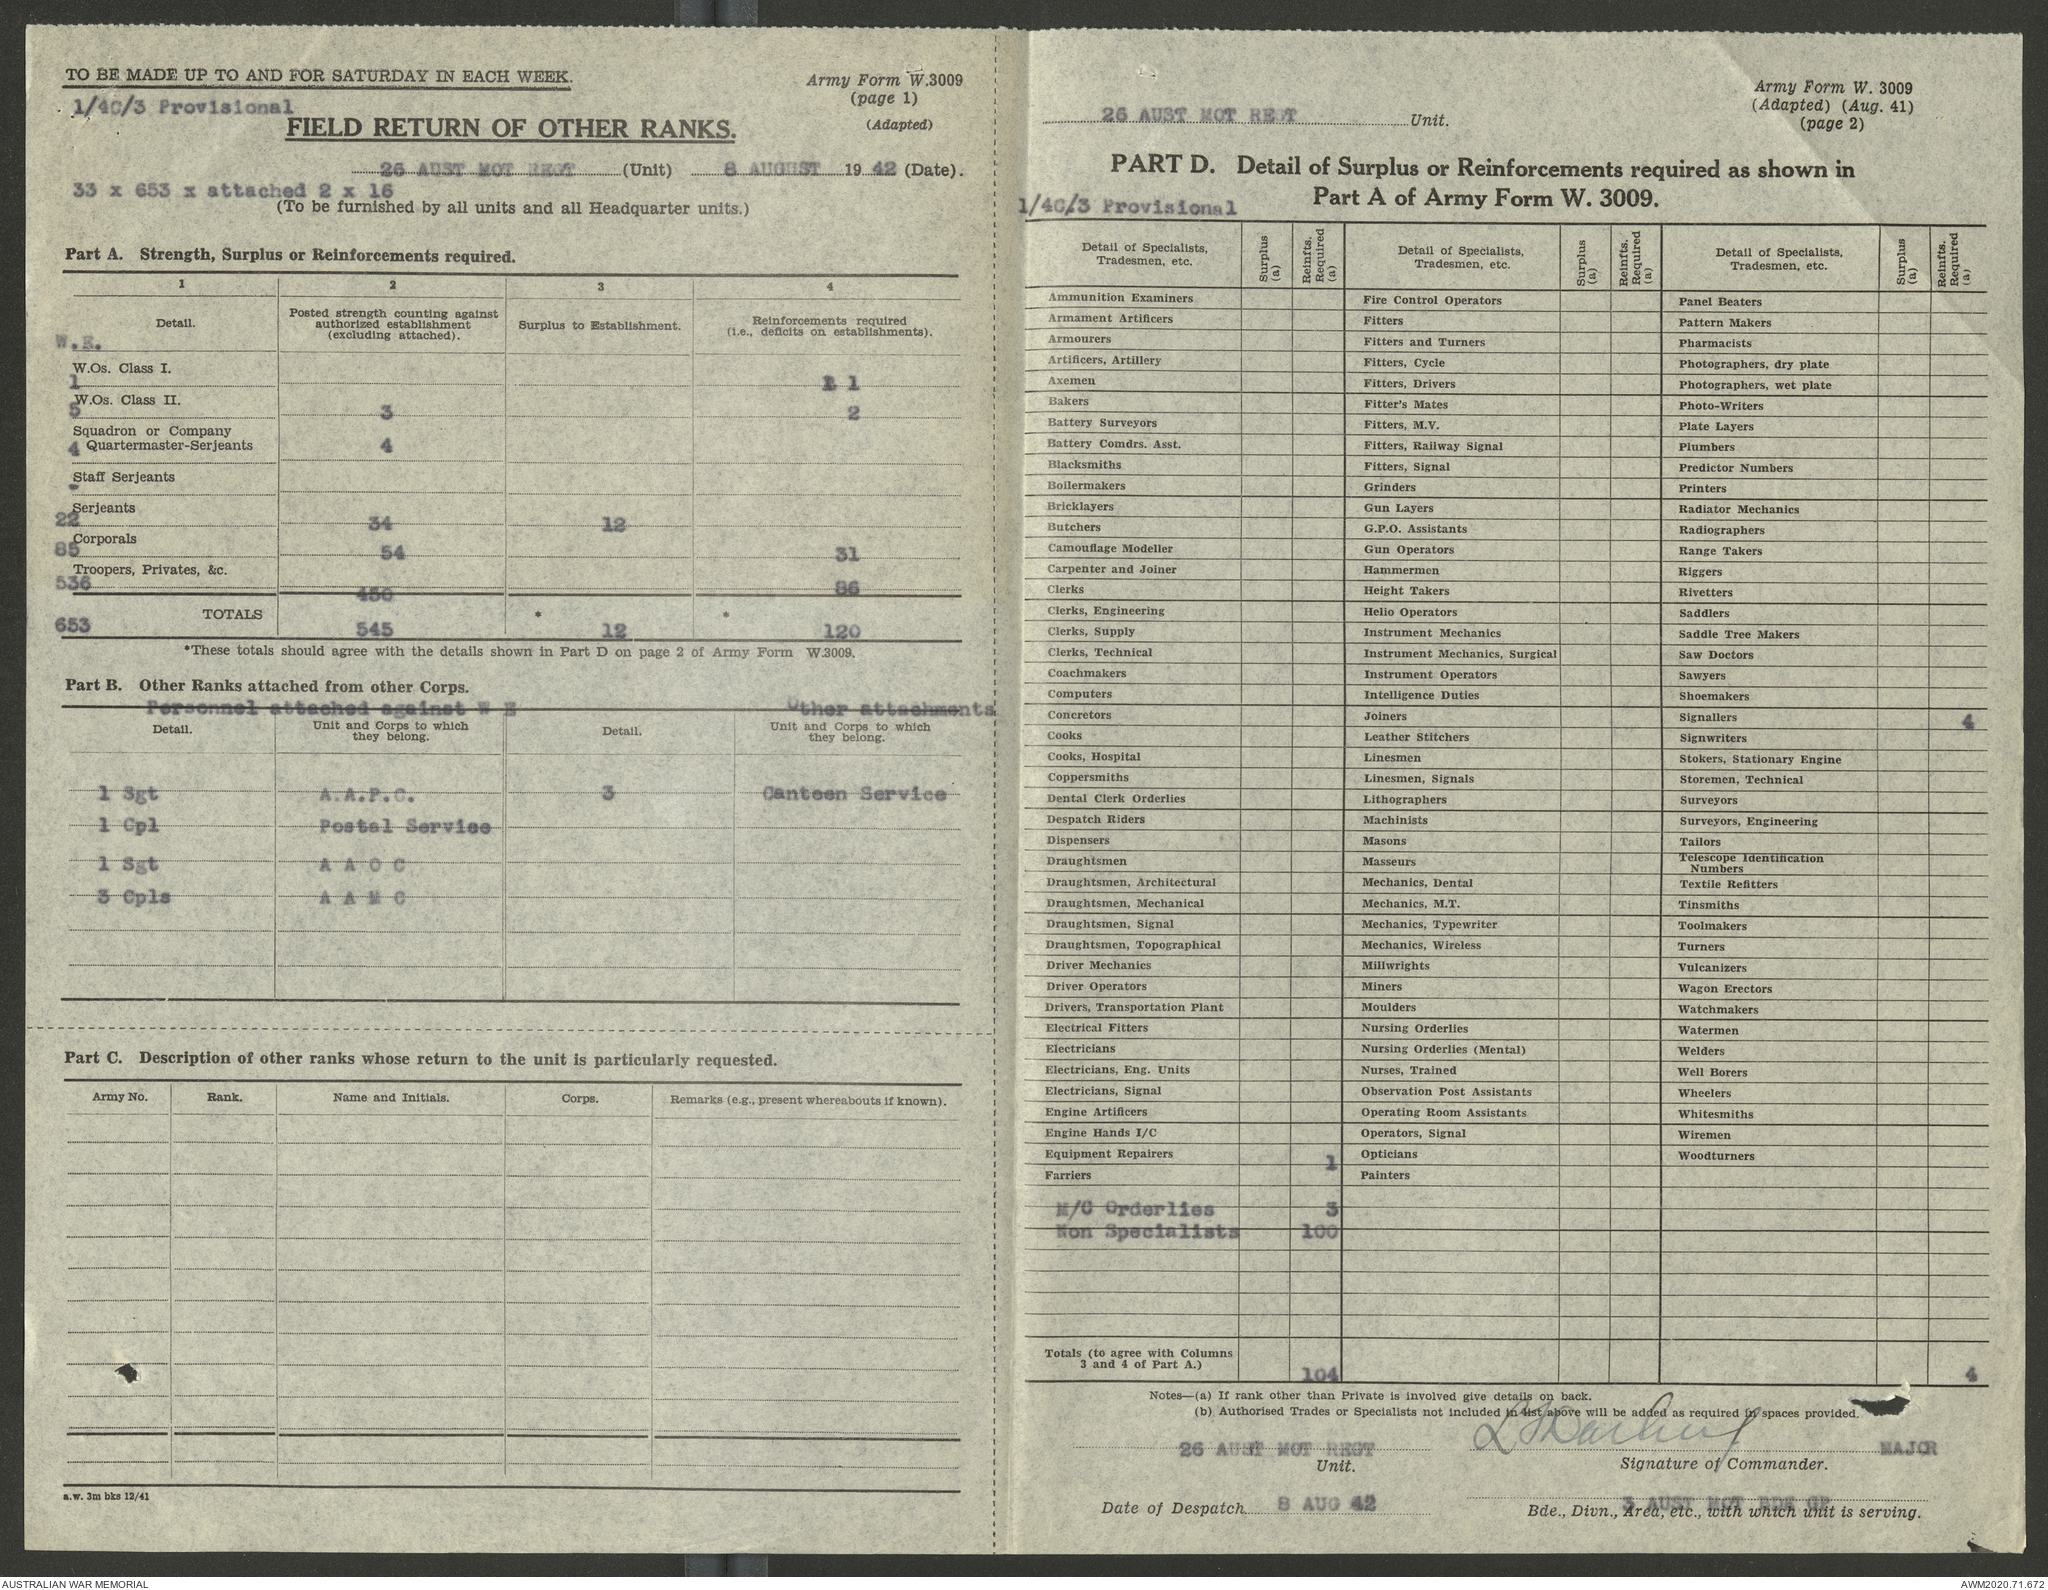 TO BE MADE UP TO AND FOR SATURDAY IN EACH WEEK.
Army Form W.3009
(page 1)
(Adapted)
1/4C/3 Provisional
FIELD RETURN OF OTHER RANKS.
26 AUST MOT REGT (Unit) 8 AUGUST 1942 (Date).
33 x 653 x attached 2 x 16
(To be furnished by all units and all Headquarter units.)
Part A. Strength, Surplus or Reinforcements required.
1 2 3 4
Detail. Posted strength counting against authorized establishment (excluding attached). Surplus to Establishment. Reinforcements required (i.e., deficits on establishments).
W.E.
W.Os. Class I.
1 1 1
W.Os. Class II.
5 3 2
Squadron or Company
Quartermaster-Serjeants
4 4
Staff Serjeants
-
Serjeants
22 34 12
Corporals
85 54 31
Troopers, Privates, &c.
536 450 86
TOTALS * *
653 545 12 120
*These totals should agree with the details shown in Part D on page 2 of Army Form W.3009.
Part B. Other Ranks attached from other Corps.
Personnel attached against W E Other attachments
Detail. Unit and Corps to which they belong. Detail. Unit and Corps to which they belong.
1 Sgt A.A.P.C. 3 Canteen Service
1 Cpl Postal Service
1 Sgt A A O C
3 Cpls A A M C
Part C. Description of other ranks whose return to the unit is particularly requested.
Army No. Rank. Name and Initials. Corps. Remarks (e.g., present whereabouts if known).
a.w. 3m bks 12/41
26 AUST MOT REGT Unit.
Army Form W. 3009
(Adapted) (Aug. 41)
(page 2)
PART D. Detail of Surplus or Reinforcements required as shown in
Part A of Army Form W. 3009.
1/4C/3 Provisional
Detail of Specialists, Tradesmen, etc. Surplus (a) Reinfts. Required (a) Detail of Specialists, Tradesmen, etc. Surplus (a) Reinfts. Required (a) Detail of Specialists, Tradesmen, etc. Surplus (a) Reinfts. Required (a)
Ammunition Examiners Fire Control Operators Panel Beaters
Armament Artificers Fitters Pattern Makers
Armourers Fitters and Turners Pharmacists
Artificers, Artillery Fitters, Cycle Photographers, dry plate
Axemen Fitters, Drivers Photographers, wet plate
Bakers Fitter's Mates Photo-Writers
Battery Surveyors Fitters, M.V. Plate Layers
Battery Comdrs. Asst. Fitters, Railway Signal Plumbers
Blacksmiths Fitters, Signal Predictor Numbers
Boilermakers Grinders Printers
Bricklayers Gun Layers Radiator Mechanics
Butchers G.P.O. Assistants Radiographers
Camouflage Modeller Gun Operators Range Takers
Carpenter and Joiner Hammermen Riggers
Clerks Height Takers Rivetters
Clerks, Engineering Helio Operators Saddlers
Clerks, Supply Instrument Mechanics Saddle Tree Makers
Clerks, Technical Instrument Mechanics, Surgical Saw Doctors
Coachmakers Instrument Operators Sawyers
Computers Intelligence Duties Shoemakers
Concretors Joiners Signallers 4
Cooks Leather Stitchers Signwriters
Cooks, Hospital Linesmen Stokers, Stationary Engine
Coppersmiths Linesmen, Signals Storemen, Technical
Dental Clerk Orderlies Lithographers Surveyors
Despatch Riders Machinists Surveyors, Engineering
Dispensers Masons Tailors
Draughtsmen Masseurs Telescope Identification Numbers
Draughtsmen, Architectural Mechanics, Dental Textile Refitters
Draughtsmen, Mechanical Mechanics, M.T. Tinsmiths
Draughtsmen, Signal Mechanics, Typewriter Toolmakers
Draughtsmen, Topographical Mechanics, Wireless Turners
Driver Mechanics Millwrights Vulcanizers
Driver Operators Miners Wagon Erectors
Drivers, Transportation Plant Moulders Watchmakers
Electrical Fitters Nursing Orderlies Watermen
Electricians Nursing Orderlies (Mental) Welders
Electricians, Eng. Units Nurses, Trained Well Borers
Electricians, Signal Observation Post Assistants Wheelers
Engine Artificers Operating Room Assistants Whitesmiths
Engine Hands I/C Operators, Signal Wiremen
Equipment Repairers 1 Opticians Woodturners
Farriers Painters
M/C Orderlies 3
Non Specialists 100
Totals (to agree with Columns 3 and 4 of Part A.) 104 4
Notes—(a) If rank other than Private is involved give details on back.
(b) Authorised Trades or Specialists not included in list above will be added as required in spaces provided.
26 AUST MOT REGT MAJOR
Unit. Signature of Commander.
Date of Despatch 8 AUG 42 3 AUST MOT BDE GP
Bde., Divn., Area, etc., with which unit is serving.
AUSTRALIAN WAR MEMORIAL AWM2020.71.672